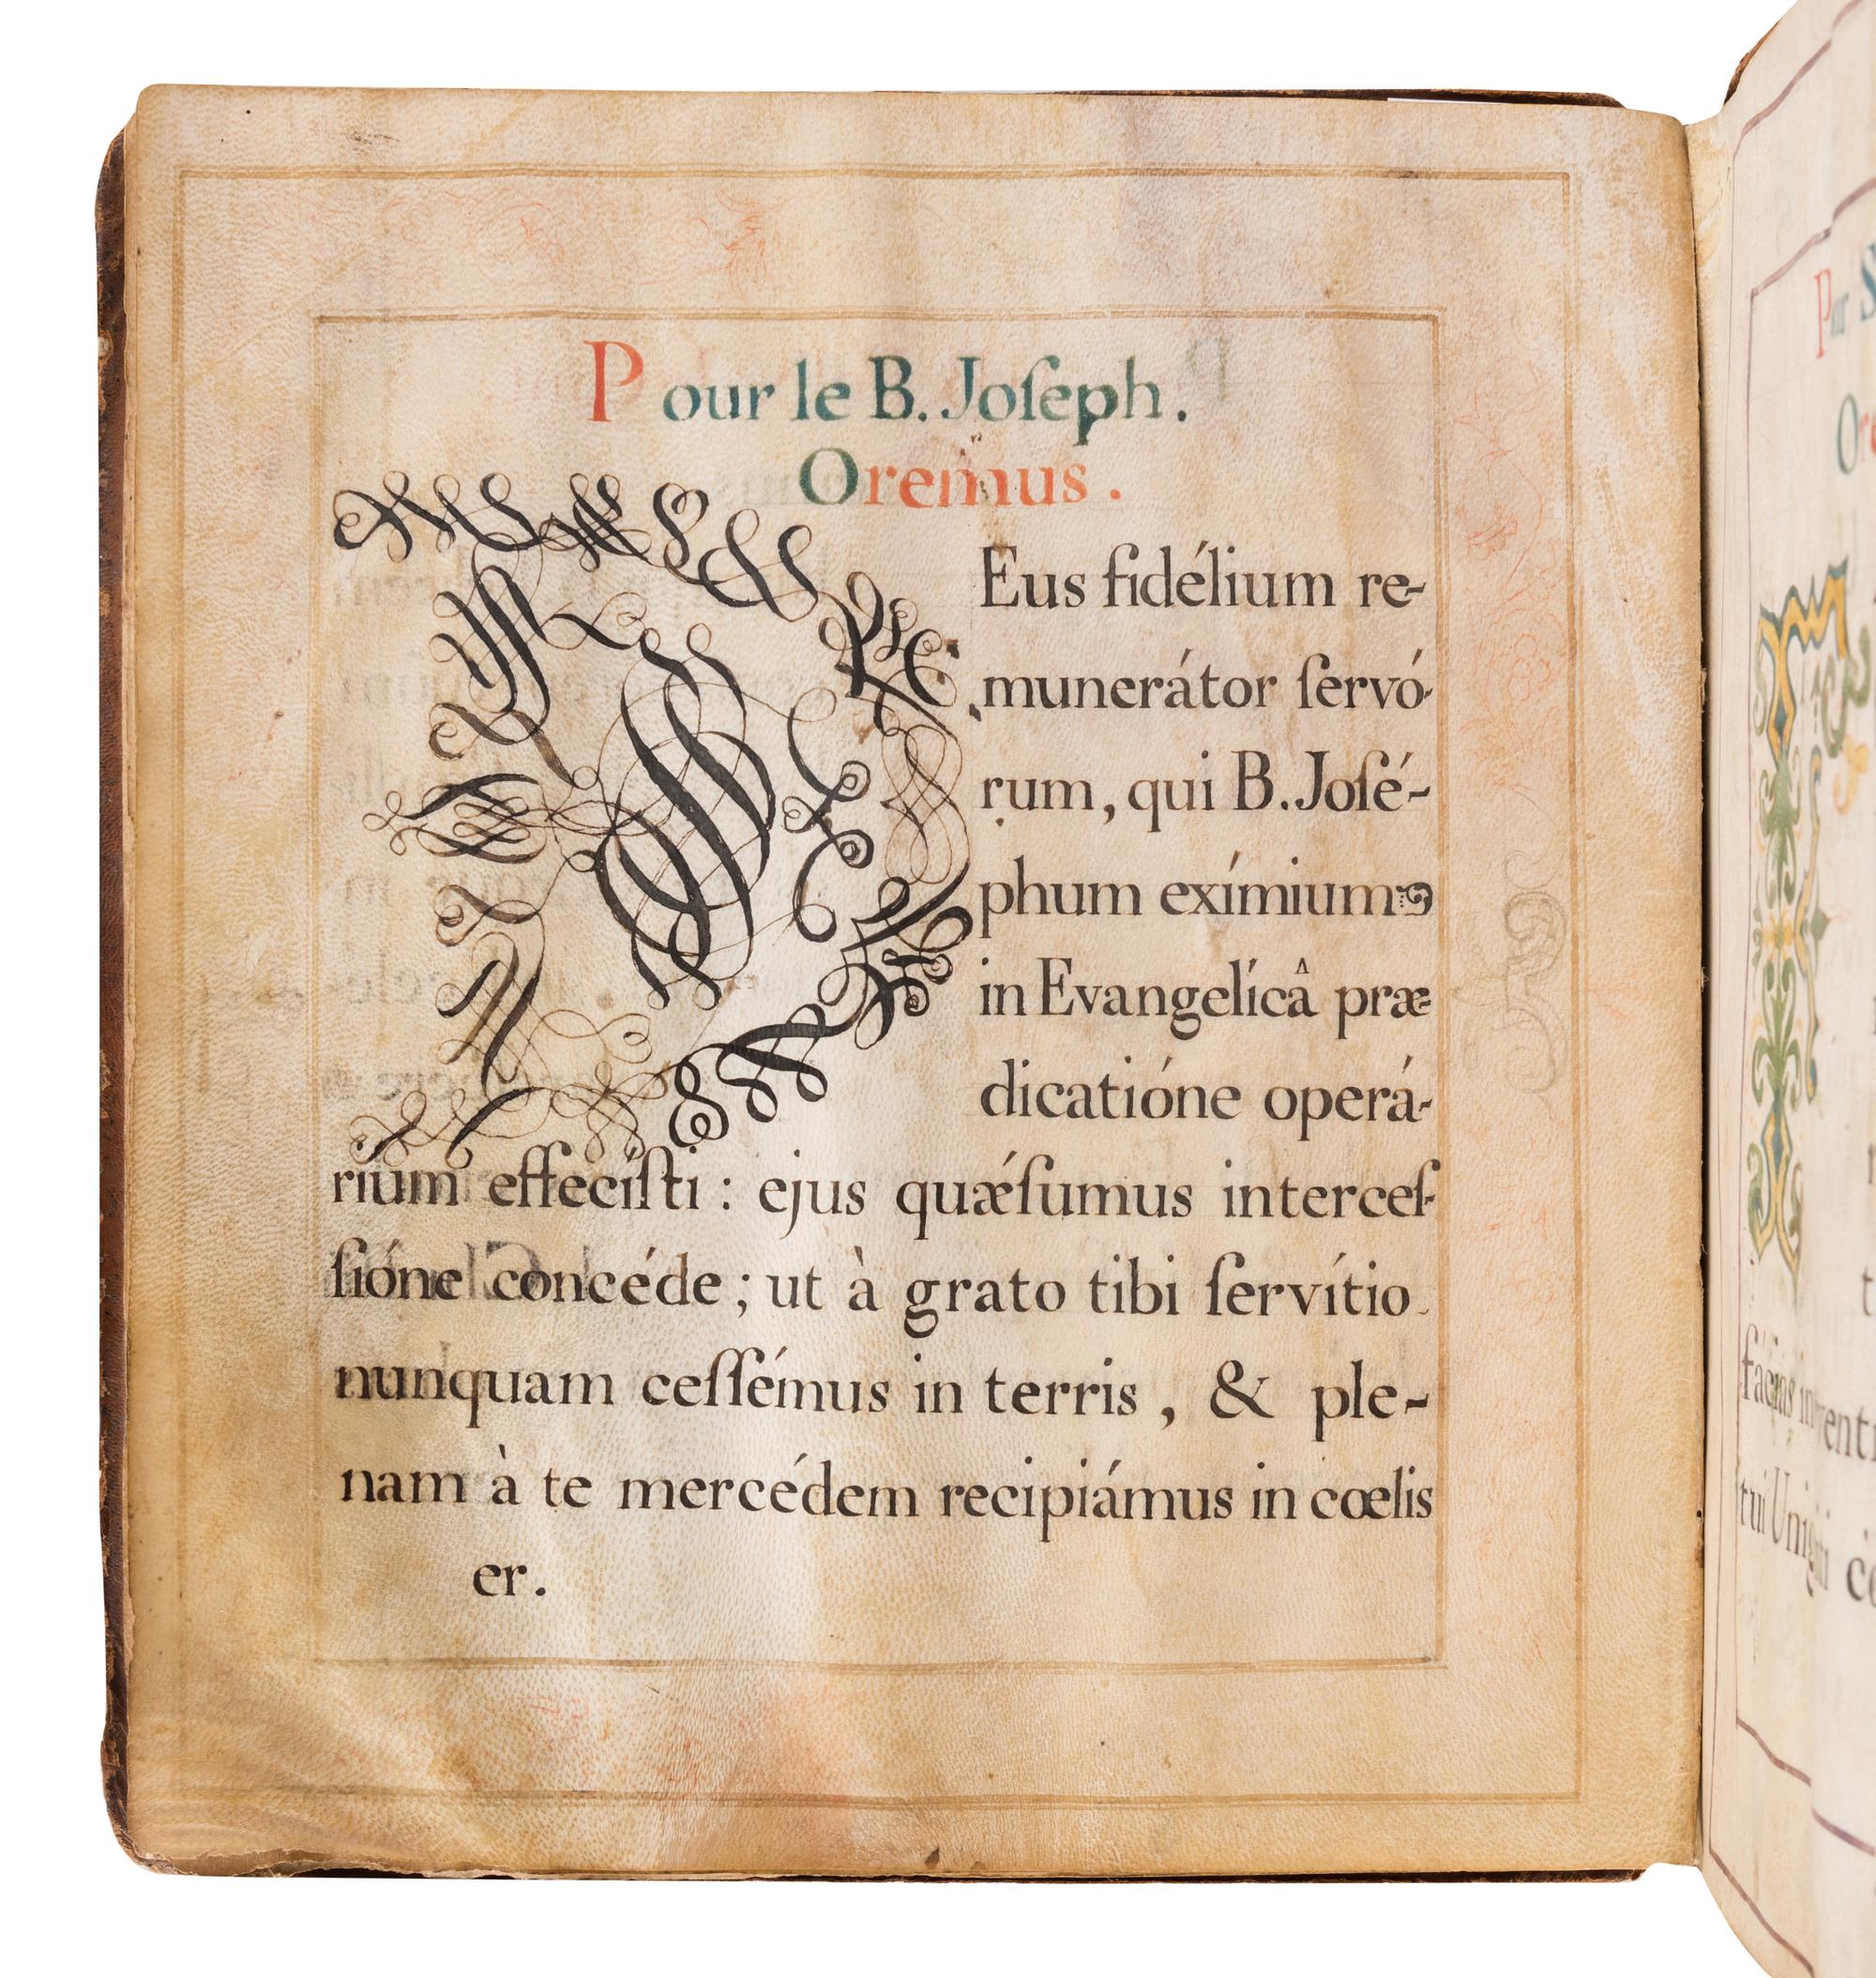 Pour le B. Joſeph.
Oremus.
DEus fidélium re-
munerátor ſervó-
rum, qui B. Joſé-
phum exímium
in Evangelícâ præ-
dicatióne operá-
rium effecíſti : ejus quǽſumus interceſ-
ſióne concéde ; ut à grato tibi ſervítio
nunquam ceſſémus in terris , & ple-
nam à te mercédem recipiámus in cœlis
er.